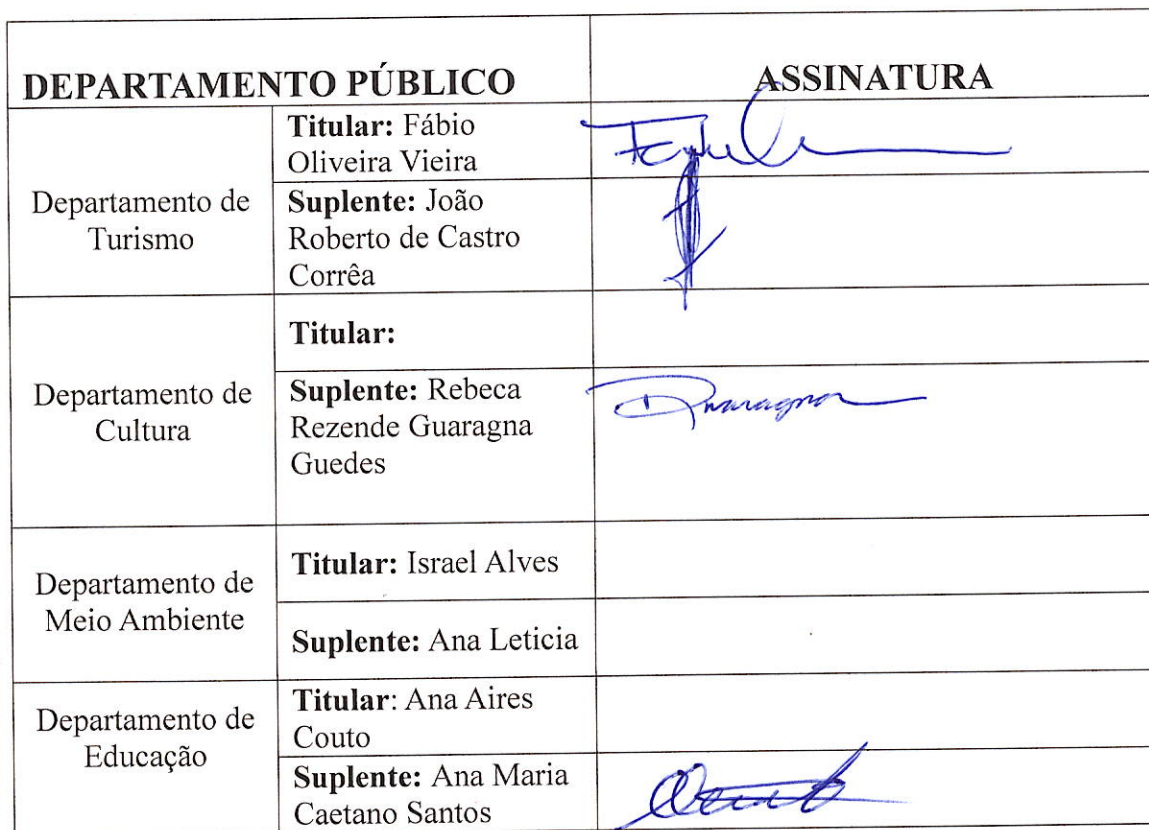 DEPARTAMENTO PÚBLICO
ASSINATURA
Departamento de
Turismo
Titular: Fábio
Oliveira Vieira
Suplente: João
Roberto de Castro
Corrêa
Departamento de
Cultura
Titular:
Suplente: Rebeca
Rezende Guaragna
Guedes
Departamento de
Meio Ambiente
Titular: Israel Alves
Suplente: Ana Leticia
Departamento de
Educação
Titular: Ana Aires
Couto
Suplente: Ana Maria
Caetano Santos